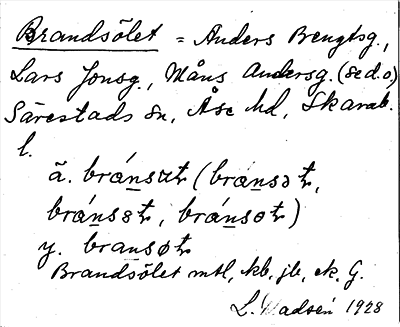 Brandsölet = Anders Bengtsg.,
Lars Jonsg., Måns Andersg. (se d.o)
Särestads sn, Åse hd, Skarab.
l.
ä. bránsɷtr (bránsətr,
bránsɛtr, bránsotr)
y. bransøtr
Brandsölet mtl, kb, jb, ek, G.
L. Madsén 1928